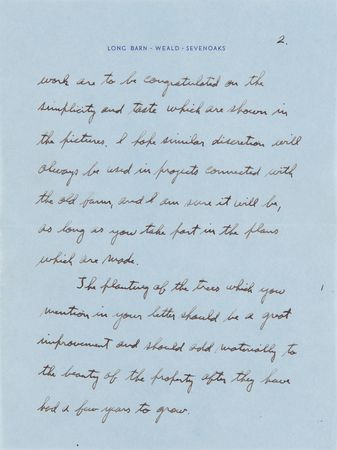 2.
LONG BARN - WEALD - SEVENOAKS
work are to be congratulated on the
simplicity and taste which are shown in
the pictures. I hope similar discretion will
always be used in projects connected with
the old farm, and I am sure it will be,
as long as you take part in the plans
which are made.
The planting of the trees which you
mention in your letter should be a great
improvement and should add materially to
the beauty of the property after they have
had a few years to grow.